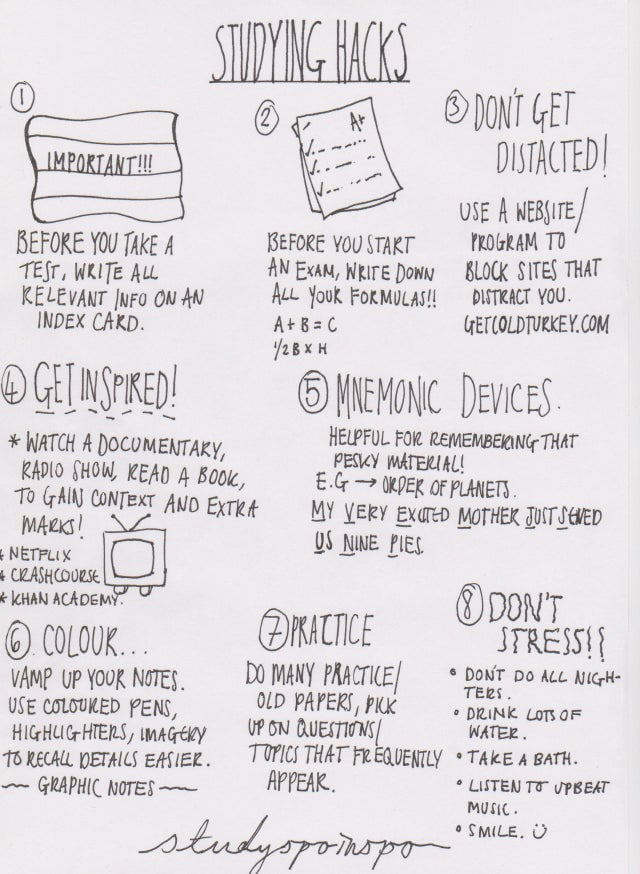 STUDYING HACKS
1
IMPORTANT!!!
BEFORE YOU TAKE A
TEST, WRITE ALL
RELEVANT INFO ON AN
INDEX CARD.
2
A+
BEFORE YOU START
AN EXAM, WRITE DOWN
ALL YOUR FORMULAS!!
A + B = C
1/2 B X H
3 DON'T GET
DISTACTED!
USE A WEBSITE/
PROGRAM TO
BLOCK SITES THAT
DISTRACT YOU.
GETCOLDTURKEY.COM
4 GET INSPIRED!
* WATCH A DOCUMENTARY,
RADIO SHOW, READ A BOOK,
TO GAIN CONTEXT AND EXTRA
MARKS!
* NETFLIX
* CRASHCOURSE
* KHAN ACADEMY.
5 MNEMONIC DEVICES.
HELPFUL FOR REMEMBERING THAT
PESKY MATERIAL!
E.G → ORDER OF PLANETS.
MY VERY EXCITED MOTHER JUST SERVED
US NINE PIES.
6 COLOUR...
VAMP UP YOUR NOTES.
USE COLOURED PENS,
HIGHLIGHTERS, IMAGERY
TO RECALL DETAILS EASIER.
~ GRAPHIC NOTES ~
7 PRACTICE
DO MANY PRACTICE/
OLD PAPERS, PICK
UP ON QUESTIONS/
TOPICS THAT FREQUENTLY
APPEAR.
8 DON'T
STRESS!!
• DON'T DO ALL NIGH-
TERS.
• DRINK LOTS OF
WATER.
• TAKE A BATH.
• LISTEN TO UPBEAT
MUSIC.
• SMILE. ☺
studyspoinspo